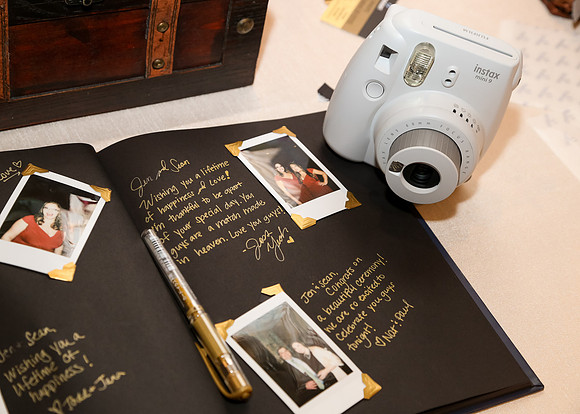 Love! ♡
Jen and Sean
Wishing you a lifetime
of happiness & Love!
I'm thankful to be apart
of your special day. You
guys are a match made
in heaven. Love you guys!
Jen & Sean,
Congrats on
a beautiful ceremony!
We are so excited to
celebrate you guys
tonight!
♡ Nat & Paul
Jen & Sean
Wishing you a
lifetime of
happiness!
instax
mini 9